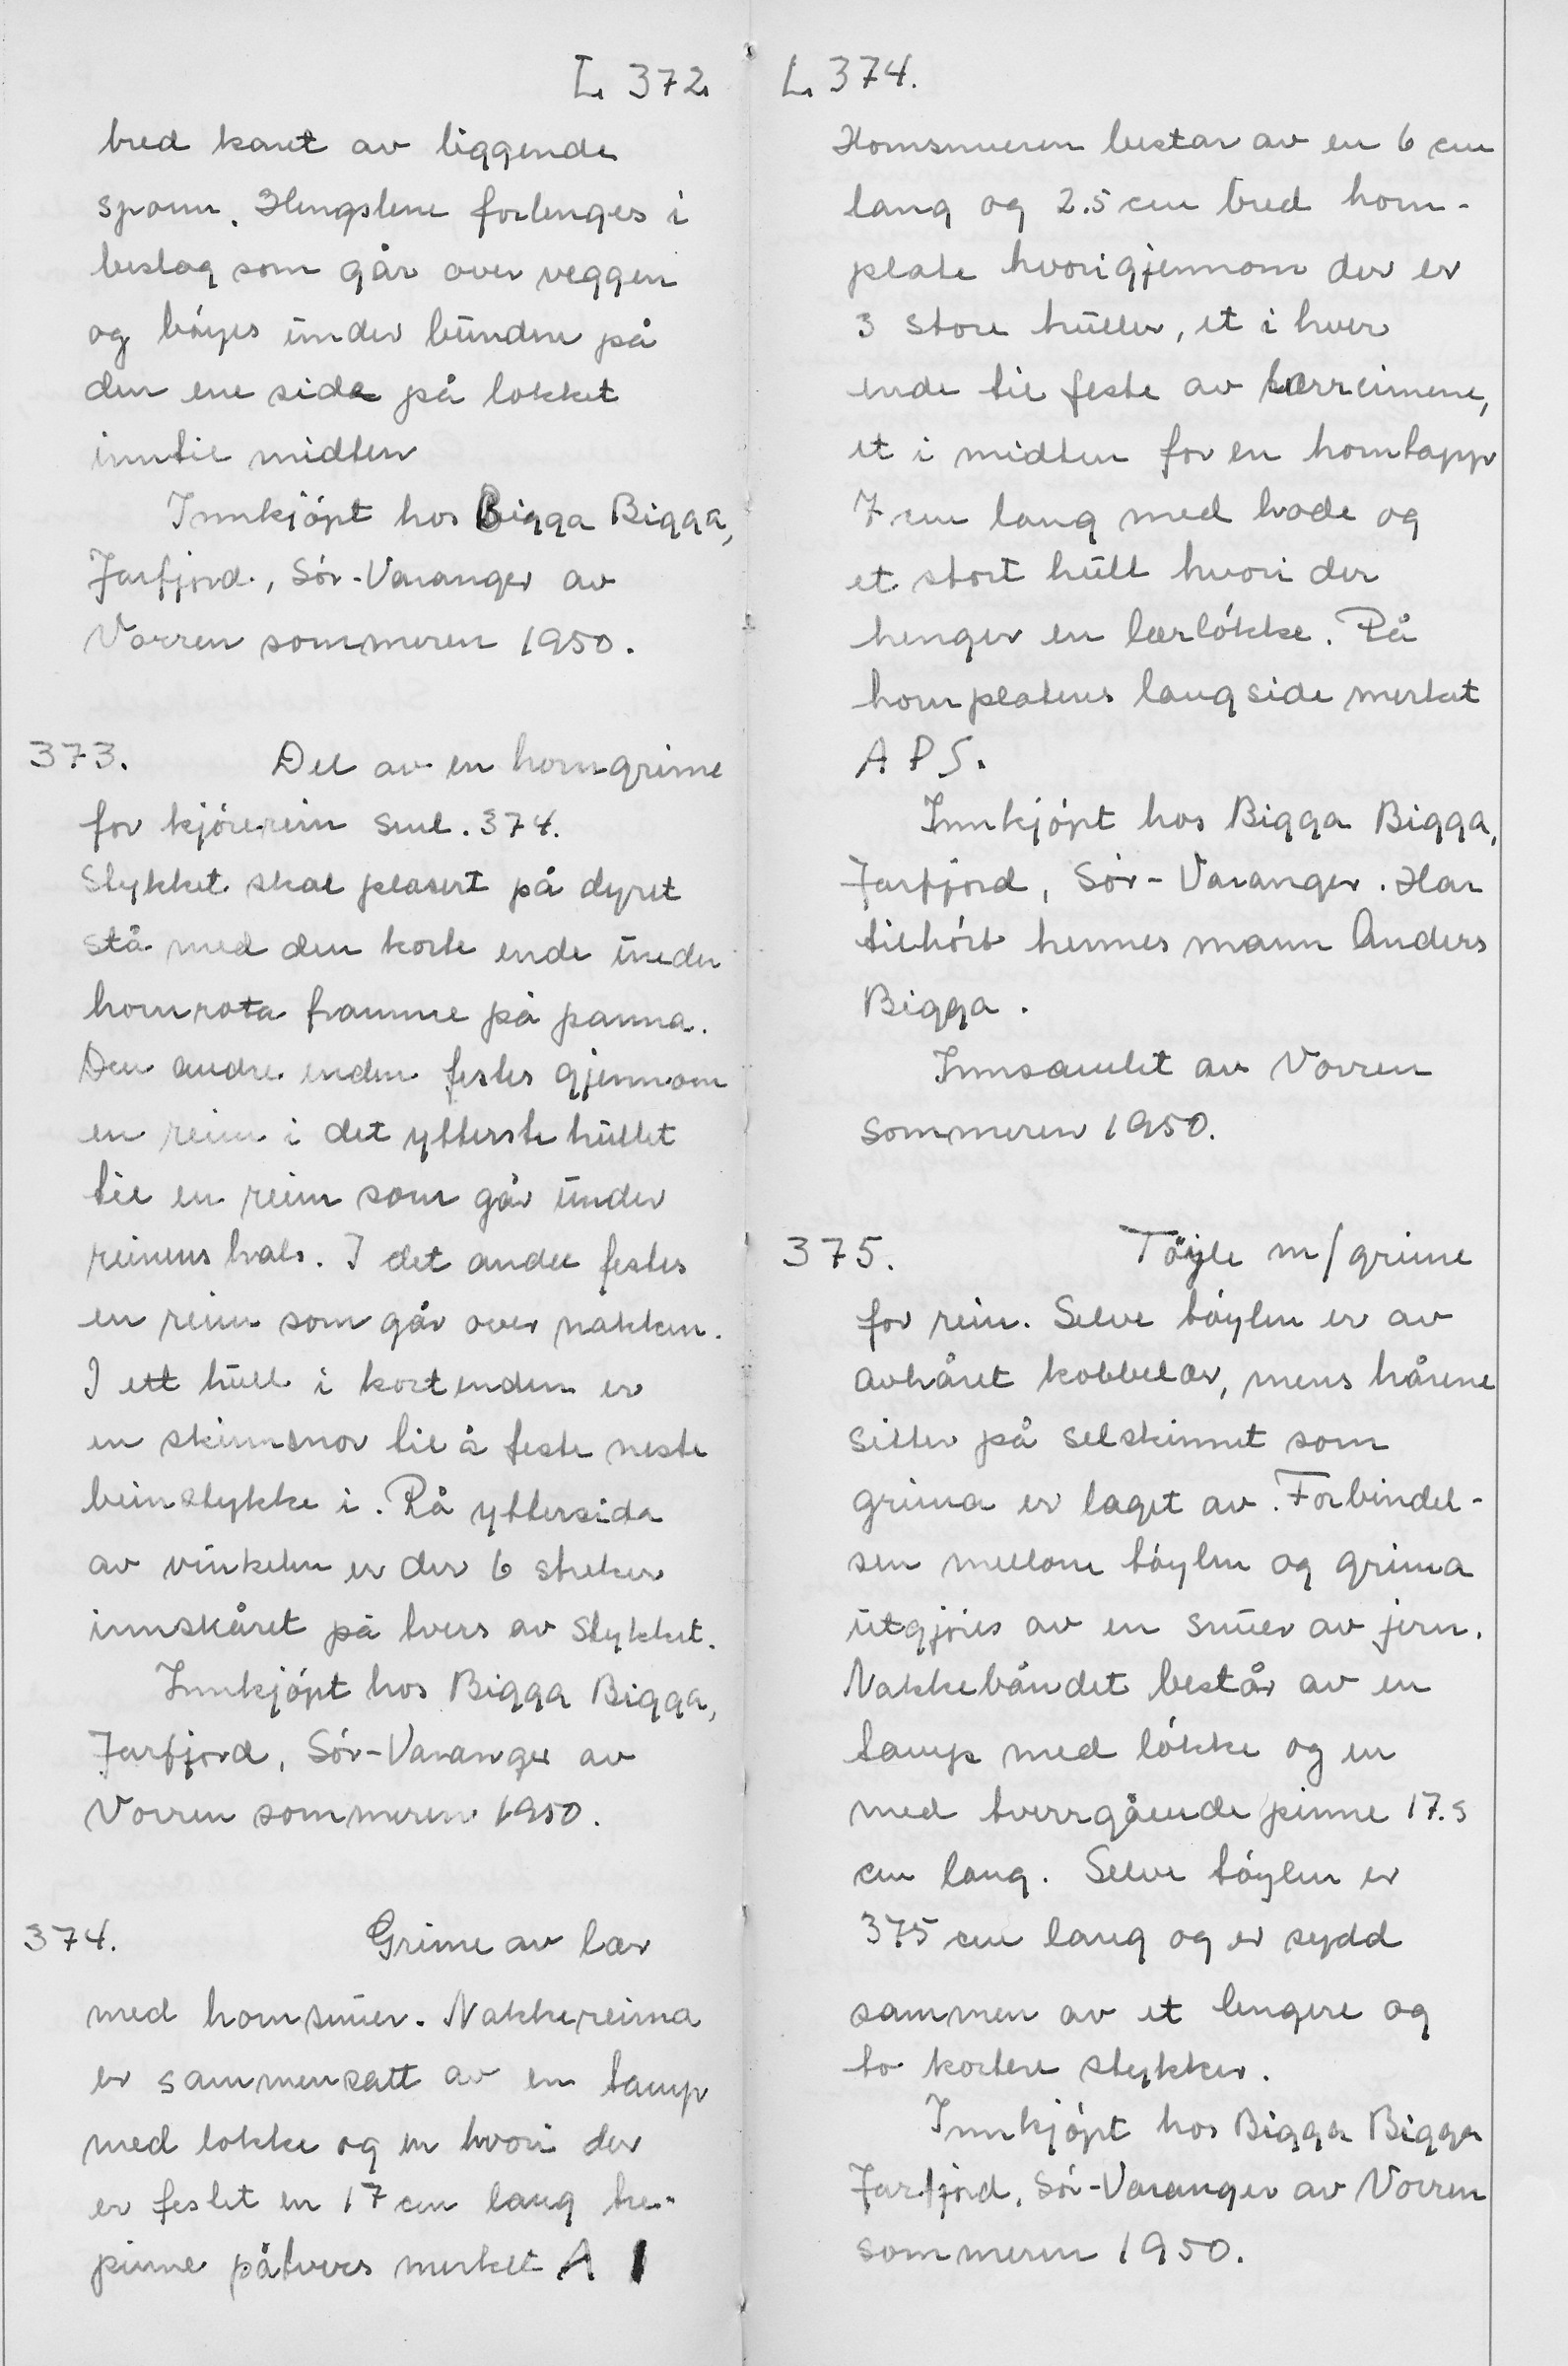 L. 372.
bred kant av liggende
sponn. Hengslene forlenges i
beslag som går over veggen
og bøyes under bunden på
den ene side på lokket
inntil midten
Innkjøpt hos Bigga Bigga,
Jarfjord, Sør-Varanger av
Vorren sommeren 1950.
373. Del av en horngrime
for kjørerein sml. 374.
Stykket skal plasert på dyret
stå med den korte ende uneder
hornrota framme på panna.
Den andre enden festes gjennom
en reim i det ytterste hullet
til en reim som går under
reinens hals. I det andre festes
en reim som går over nakken.
I ett hull i kortenden er
en skinnsnor til å feste neste
beinstykke i. På yttersida
av vinkelen er der 6 streker
innskåret på tvers av stykket.
Innkjøpt hos Bigga Bigga,
Jarfjord, Sør-Varanger av
Vorren sommeren 1950.
374. Grime av lær
med hornsnuer. Nakkereima
er sammensatt av en tamp
med løkke og en hvori der
er festet en 17 cm lang tre-
pinne påtvers merket A
L. 374.
Hornsnueren består av en 6 cm
lang og 2.5 cm bred horn-
plate hvorigjennom der er
3 store huller, et i hver
ende til feste av lærreimene,
et i midten for en horntapp
7 cm lang med hode og
et stort hull hvori der
henger en lærløkke. På
hornplatens langside merket
A P S.
Innkjøpt hos Bigga Bigga,
Jarfjord, Sør-Varanger. Har
tilhørt hennes mann Anders
Bigga.
Innsamlet av Vorren
sommeren 1950.
375. Tøyle m/grime
for rein. Selve tøylen er av
avhåret kobbelær, mens hårene
sitter på selskinnet som
grima er laget av. Forbindel-
sen mellom tøylen og grima
utgjøres av en snuer av jern.
Nakkebåndet består av en
tamp med løkke og en
med tverrgående pinne 17.5
cm lang. Selve tøylen er
375 cm lang og er sydd
sammen av et lengere og
to kortere stykker.
Innkjøpt hos Bigga Bigga
Jarfjord, Sør-Varanger av Vorren
sommeren 1950.